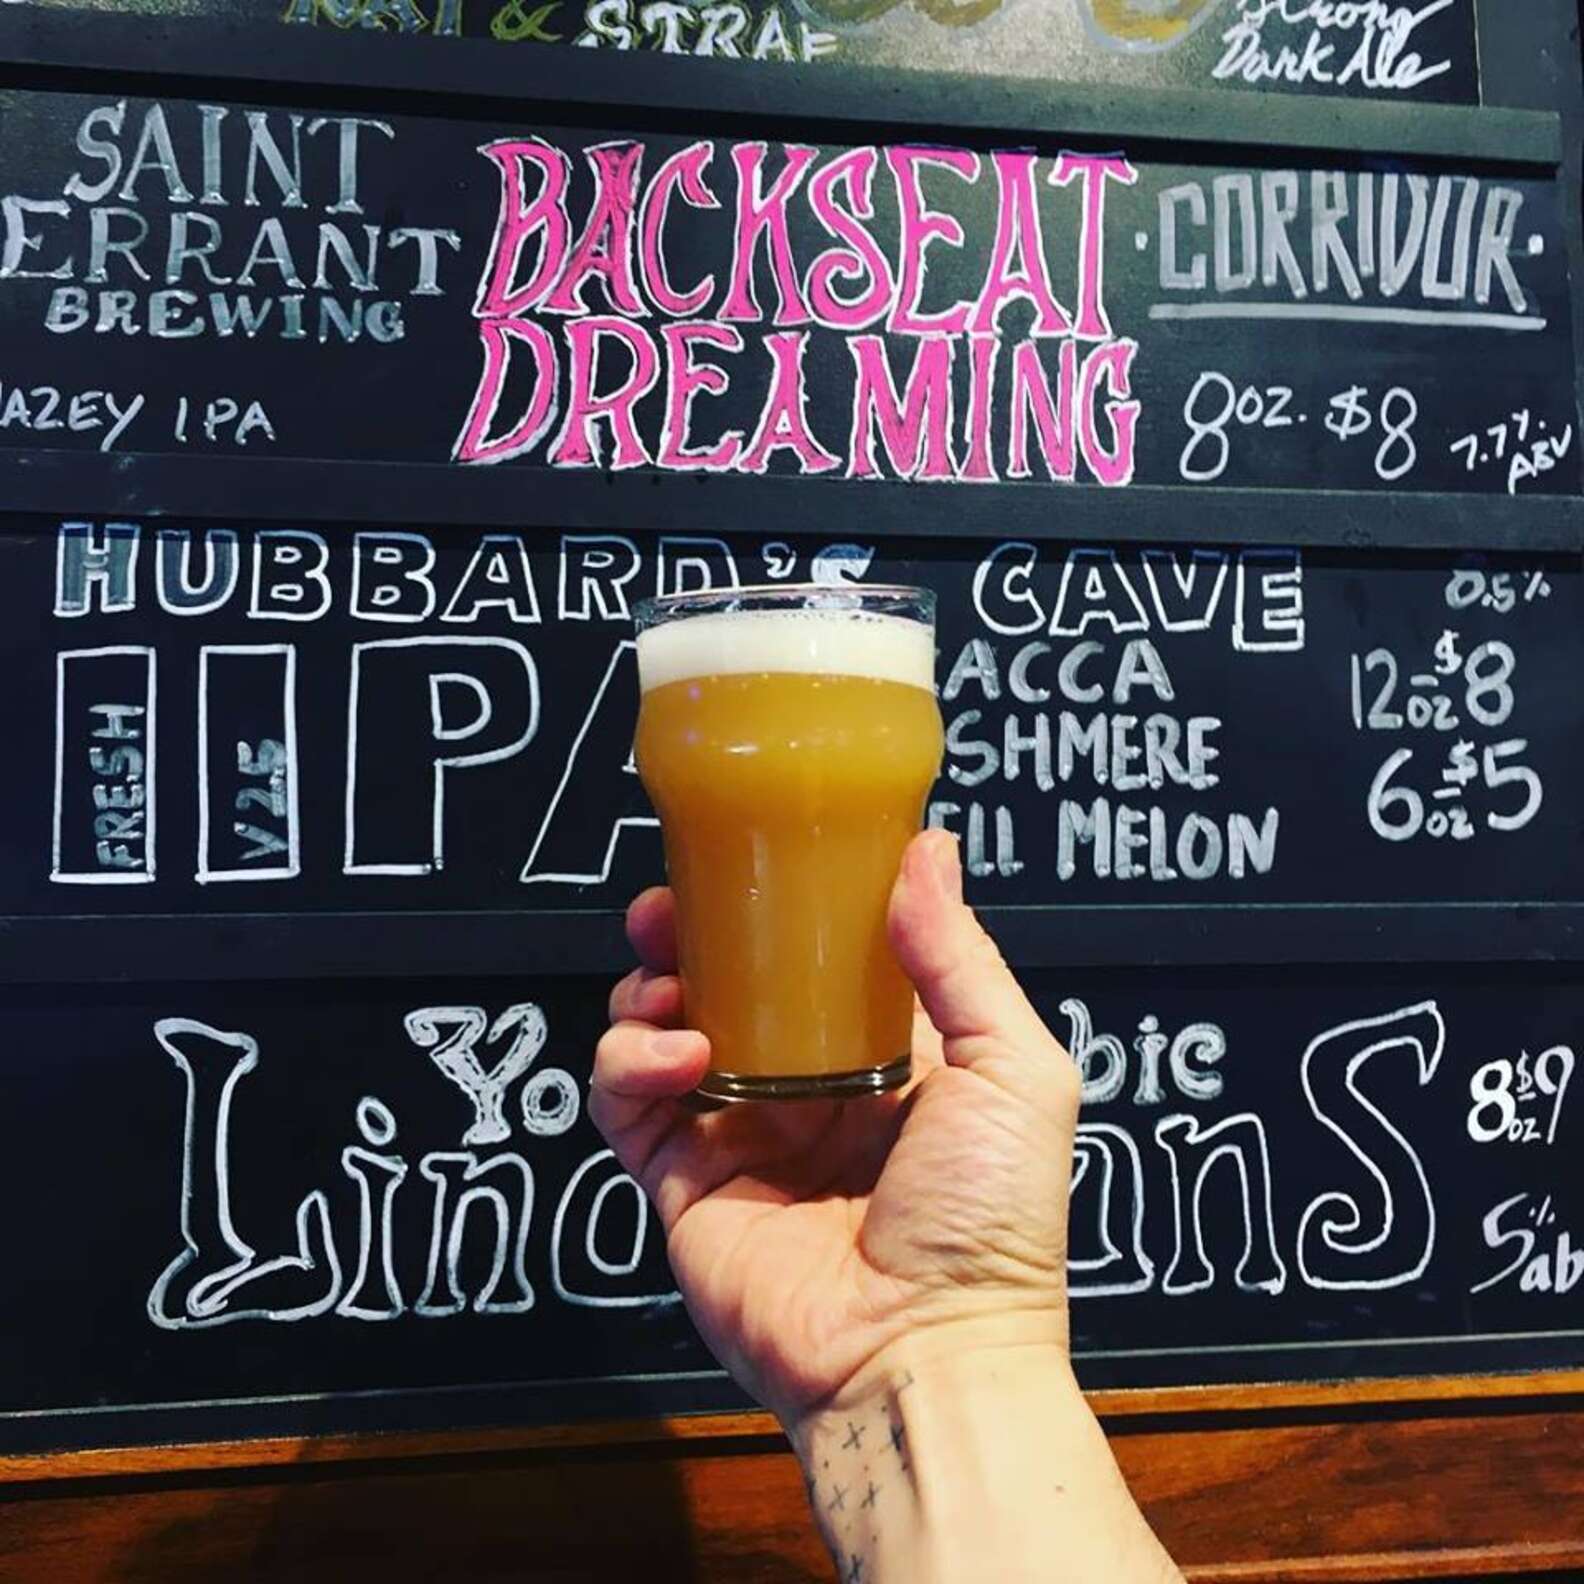 & STRAF
Strong
Dark Ale
SAINT
ERRANT
BREWING
AZEY IPA
BACKSEAT
DREAMING
· CORRIDOR ·
8oz. $8 7.7% ABV
HUBBARD'S CAVE
FRESH
V25
IIPA
ACCA
SHMERE
ELL MELON
8.5%
12oz $8
6oz $5
Yo bic
Linc ans
8oz $9
5% ab